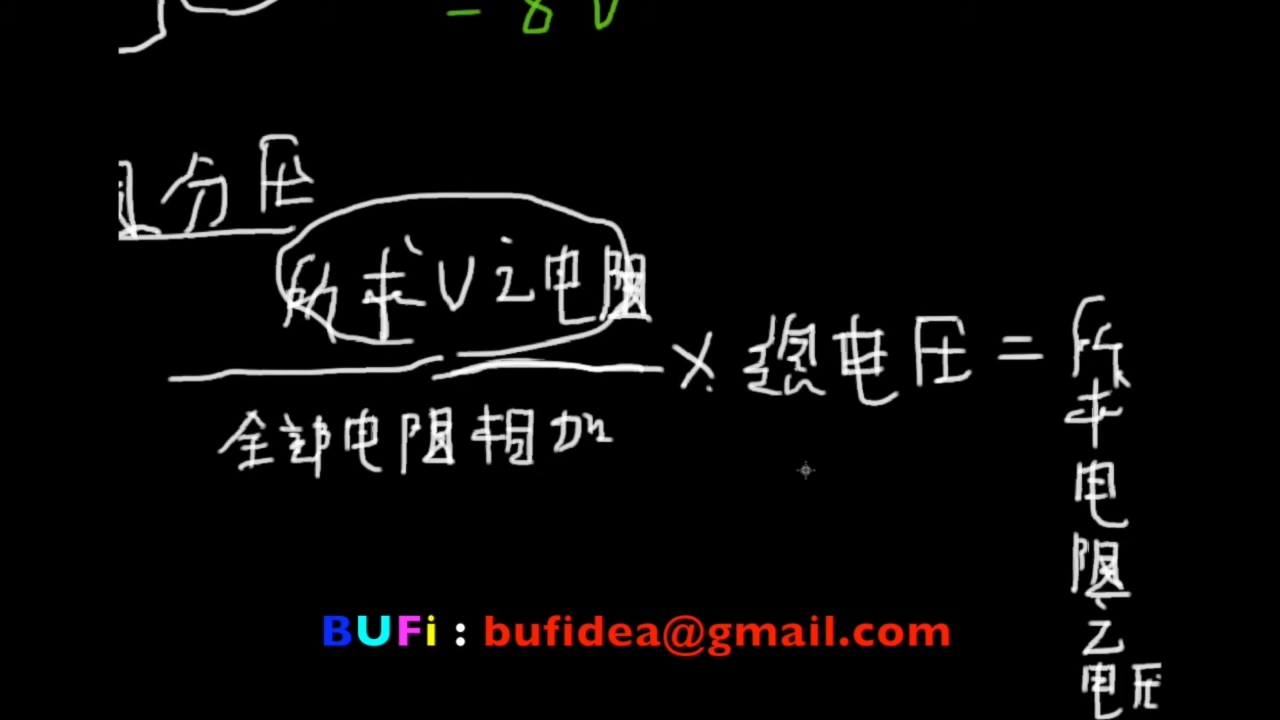 = 8V
分压
所求V之电阻
全部电阻相加
× 总电压 =
所求电阻之电压
BUFi : bufidea@gmail.com